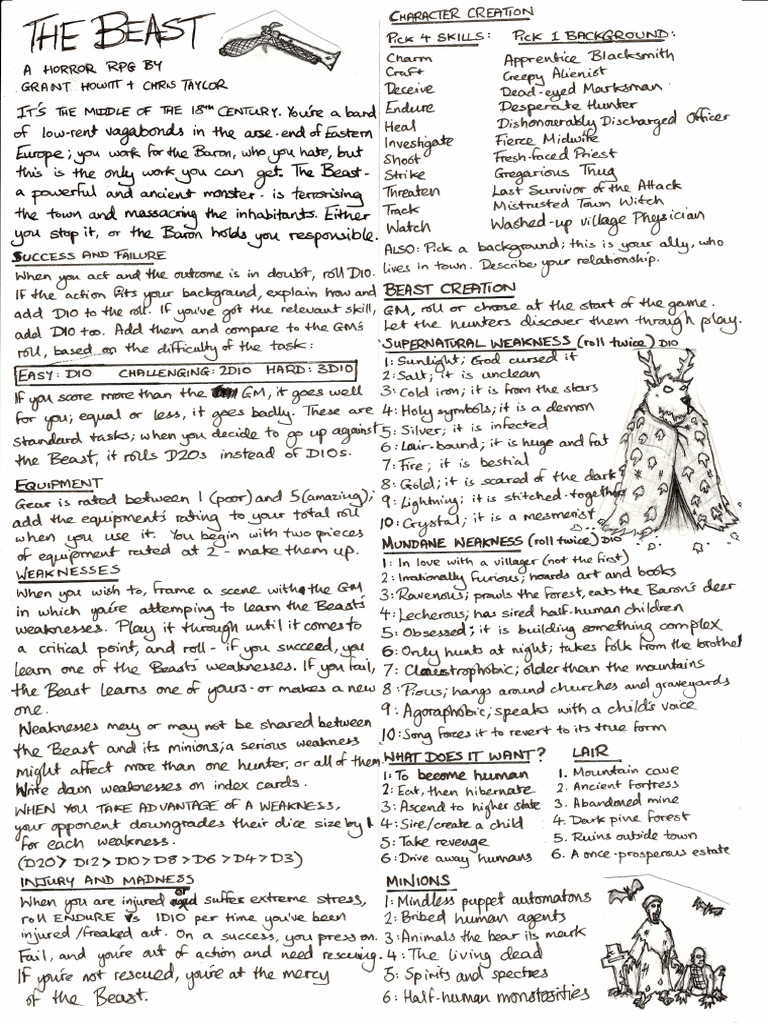 THE BEAST
A HORROR RPG BY
GRANT HOWITT + CHRIS TAYLOR
IT'S THE MIDDLE OF THE 18TH CENTURY. You're a band
of low-rent vagabonds in the arse-end of Eastern
Europe; you work for the Baron, who you hate, but
this is the only work you can get. The Beast -
a powerful and ancient monster - is terrorising
the town and massacring the inhabitants. Either
you stop it, or the Baron holds you responsible.
SUCCESS AND FAILURE
When you act and the outcome is in doubt, roll D10.
If the action fits your background, explain how and
add D10 to the roll. If you've got the relevant skill,
add D10 too. Add them and compare to the GM's
roll, based on the difficulty of the task:
EASY: D10 CHALLENGING: 2D10 HARD: 3D10
If you score more than the GM, it goes well
for you; equal or less, it goes badly. These are
standard tasks; when you decide to go up against
the Beast, it rolls D20s instead of D10s.
EQUIPMENT
Gear is rated between 1 (poor) and 5 (amazing);
add the equipment's rating to your total roll
when you use it. You begin with two pieces
of equipment rated at 2 - make them up.
WEAKNESSES
When you wish to, frame a scene with the GM
in which you're attemping to learn the Beast's
weaknesses. Play it through until it comes to
a critical point, and roll - if you succeed, you
learn one of the Beasts' weaknesses. If you fail,
the Beast learns one of yours - or makes a new
one.
Weaknesses may or may not be shared between
the Beast and its minions; a serious weakness
might affect more than one hunter, or all of them.
Write down weaknesses on index cards.
WHEN YOU TAKE ADVANTAGE OF A WEAKNESS,
your opponent downgrades their dice size by 1
for each weakness.
(D20 > D12 > D10 > D8 > D6 > D4 > D3)
INJURY AND MADNESS
When you are injured or suffer extreme stress,
roll ENDURE vs 1D10 per time you've been
injured/freaked out. On a success, you press on.
Fail, and you're out of action and need rescuing.
If you're not rescued, you're at the mercy
of the Beast.
CHARACTER CREATION
Pick 4 SKILLS: Pick 1 BACKGROUND:
Charm Apprentice Blacksmith
Craft Creepy Alienist
Deceive Dead-eyed Marksman
Endure Desperate Hunter
Heal Dishonourably Discharged Officer
Investigate Fierce Midwife
Shoot Fresh-faced Priest
Strike Gregarious Thug
Threaten Last Survivor of the Attack
Track Mistrusted Town Witch
Watch Washed-up village Physician
ALSO: Pick a background; this is your ally, who
lives in town. Describe your relationship.
BEAST CREATION
GM, roll or choose at the start of the game.
Let the hunters discover them through play.
SUPERNATURAL WEAKNESS (roll twice) D10
1: Sunlight; God cursed it
2: Salt; it is unclean
3: Cold iron; it is from the stars
4: Holy symbols; it is a demon
5: Silver; it is infected
6: Lair-bound; it is huge and fat
7: Fire; it is bestial
8: Gold; it is scared of the dark
9: Lightning; it is stitched-together
10: Crystal; it is a mesmerist
MUNDANE WEAKNESS (roll twice) D10
1: In love with a villager (not the first)
2: Irrationally furious; hoards art and books
3: Ravenous; prowls the forest, eats the Baron's deer
4: Lecherous; has sired half-human children
5: Obsessed; it is building something complex
6: Only hunts at night; takes folk from the brothel
7: Claustrophobic; older than the mountains
8: Pious; hangs around churches and graveyards
9: Agoraphobic; speaks with a child's voice
10: Song forces it to revert to its true form
WHAT DOES IT WANT? LAIR
1: To become human 1. Mountain cave
2: Eat, then hibernate 2. Ancient fortress
3: Ascend to higher state 3. Abandoned mine
4: Sire/create a child 4. Dark pine forest
5: Take revenge 5. Ruins outside town
6: Drive away humans 6. A once-prosperous estate
MINIONS
1: Mindless puppet automatons
2: Bribed human agents
3: Animals the bear its mark
4: The living dead
5: Spirits and spectres
6: Half-human monstrosities